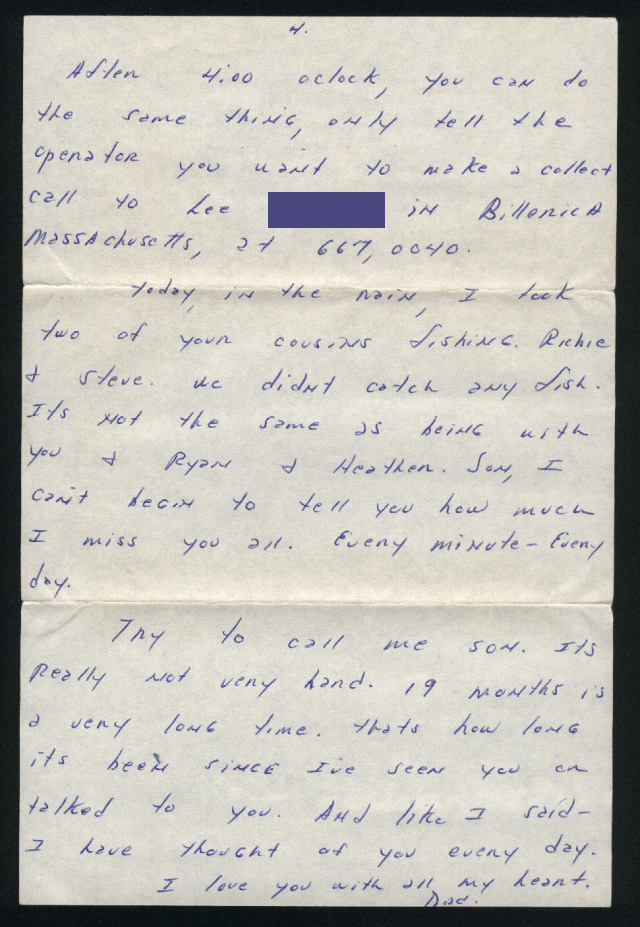 4.
After 4:00 oclock, you can do
the same thing, only tell the
operator you want to make a collect
call to Lee in Billerica
Massachusetts, at 667, 0040.
today, in the rain, I took
two of your cousins fishing. Richie
& Steve. We didnt catch any fish.
Its not the same as being with
you & Ryan & Heather. Son, I
cant begin to tell you how much
I miss you all. Every minute - Every
day.
Try to call me son. Its
Really not very hard. 19 months is
a very long time. thats how long
its been since I've seen you or
talked to you. And like I said -
I have thought of you every day.
I love you with all my heart.
Dad.